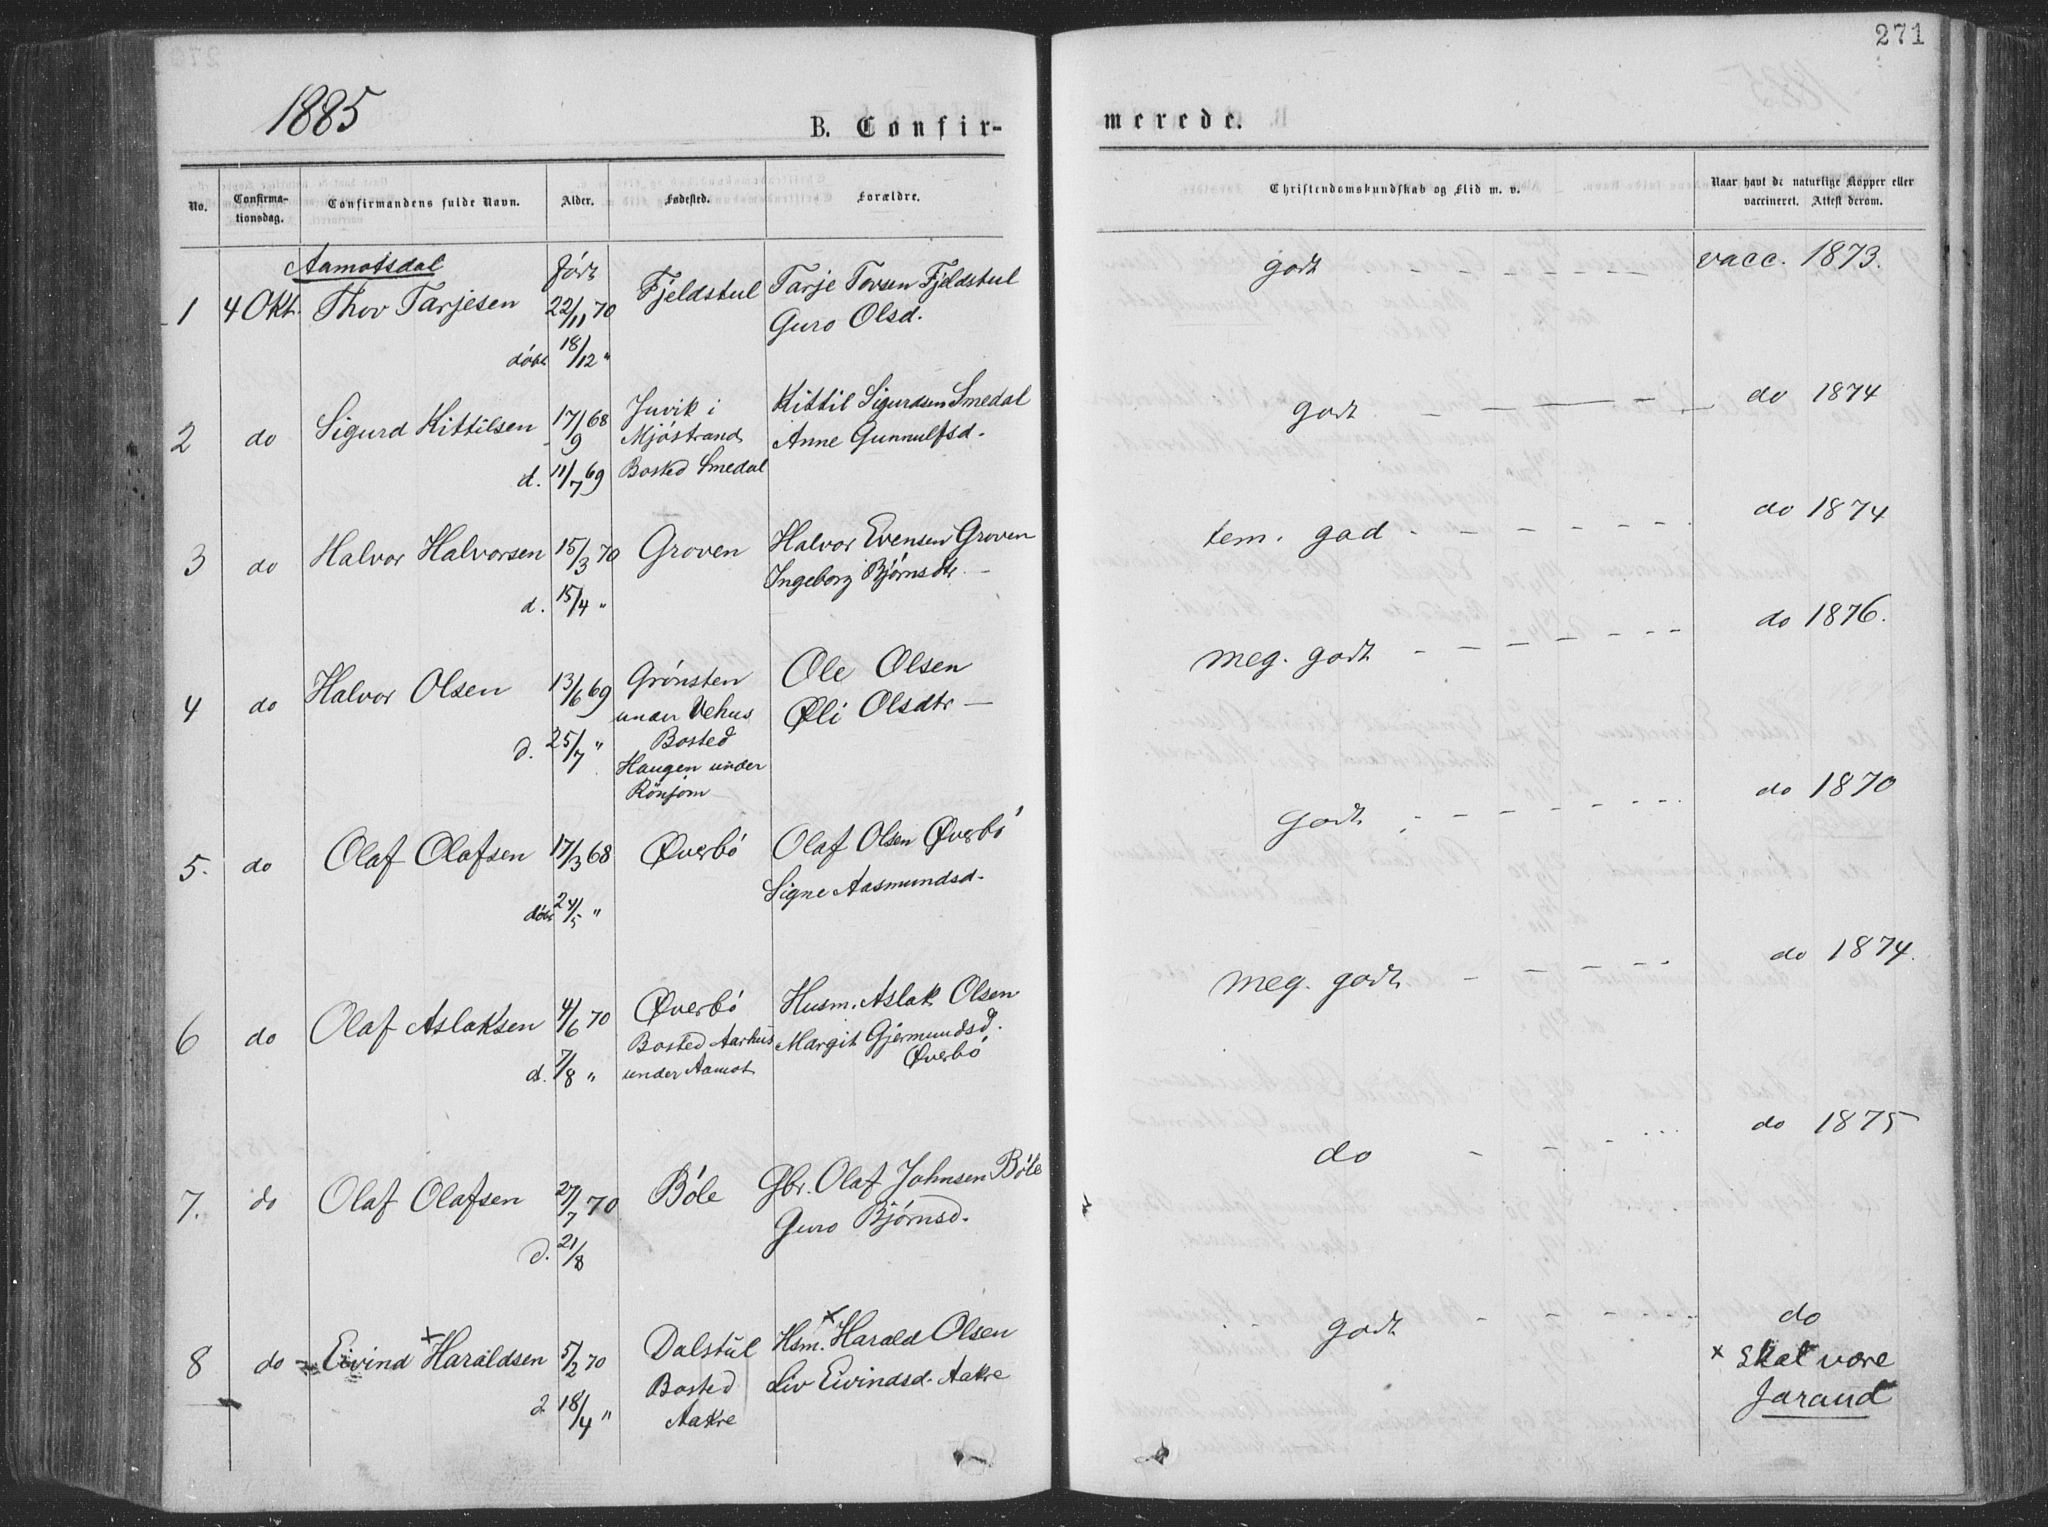 271
1885
B. Confir-
merede.
No.
Confirma-
tionsdag.
Confirmandens fulde Navn.
Alder.
Fødested.
Forældre.
Christendomskundskab og Flid m. v.
Naar havt de naturlige Kopper eller
vaccineret. Attest derom.
Aamotsdal
født
1 4 Okt. Thov Tarjesen 22/11 70 Fjeldstul Tarje Tovsen Fjeldstul godt - - - - - - vacc. 1873.
Guro Olsd.
döbt 18/12 "
2 do Sigurd Kittilsen 17/9 68 Juvik i Kittil Sigurdsen Smedal godt - - - do 1874
Mjöstrand Anne Gunnulfsd.
d. 11/7 69 Bosted Smedal
3 do Halvor Halvorsen 15/3 70 Groven Halvor Evensen Groven tem. god - - - - - - do 1874
Ingeborg Bjørnsdtr. -
d. 15/4 "
4 do Halvor Olsen 13/6 69 Grønsten Ole Olsen meg. godt - - - - - - do 1876.
under Vehus Øli Olsdtr -
d. 25/7 " Bosted
Haugen under
Rönjom
5. do Olaf Olafsen 17/3 68 Øverbö Olaf Olsen Øverbö godt - - - - - - do 1870
Signe Aasmundsd.
döbt 24/5 "
6 do Olaf Aslaksen 4/6 70 Øverbö Husm. Aslak Olsen meg. godt - - - - - do 1874.
Bosted Aarhus Margit Gjermundsd.
d. 7/8 " under Aamot Øverbö
7. do Olaf Olafsen 27/7 70 Böle Gbr. Olaf Johnsen Böle do - - - - do 1875
Guro Bjørnsd.
d. 21/8
8 do Eivind × Haraldsen 5/2 70 Dalstul Hsm. × Harald Olsen godt - - - - do
Bosted Liv Eivindsd. Aakre
d 18/4 " Aakre
× Skal være
Jarand